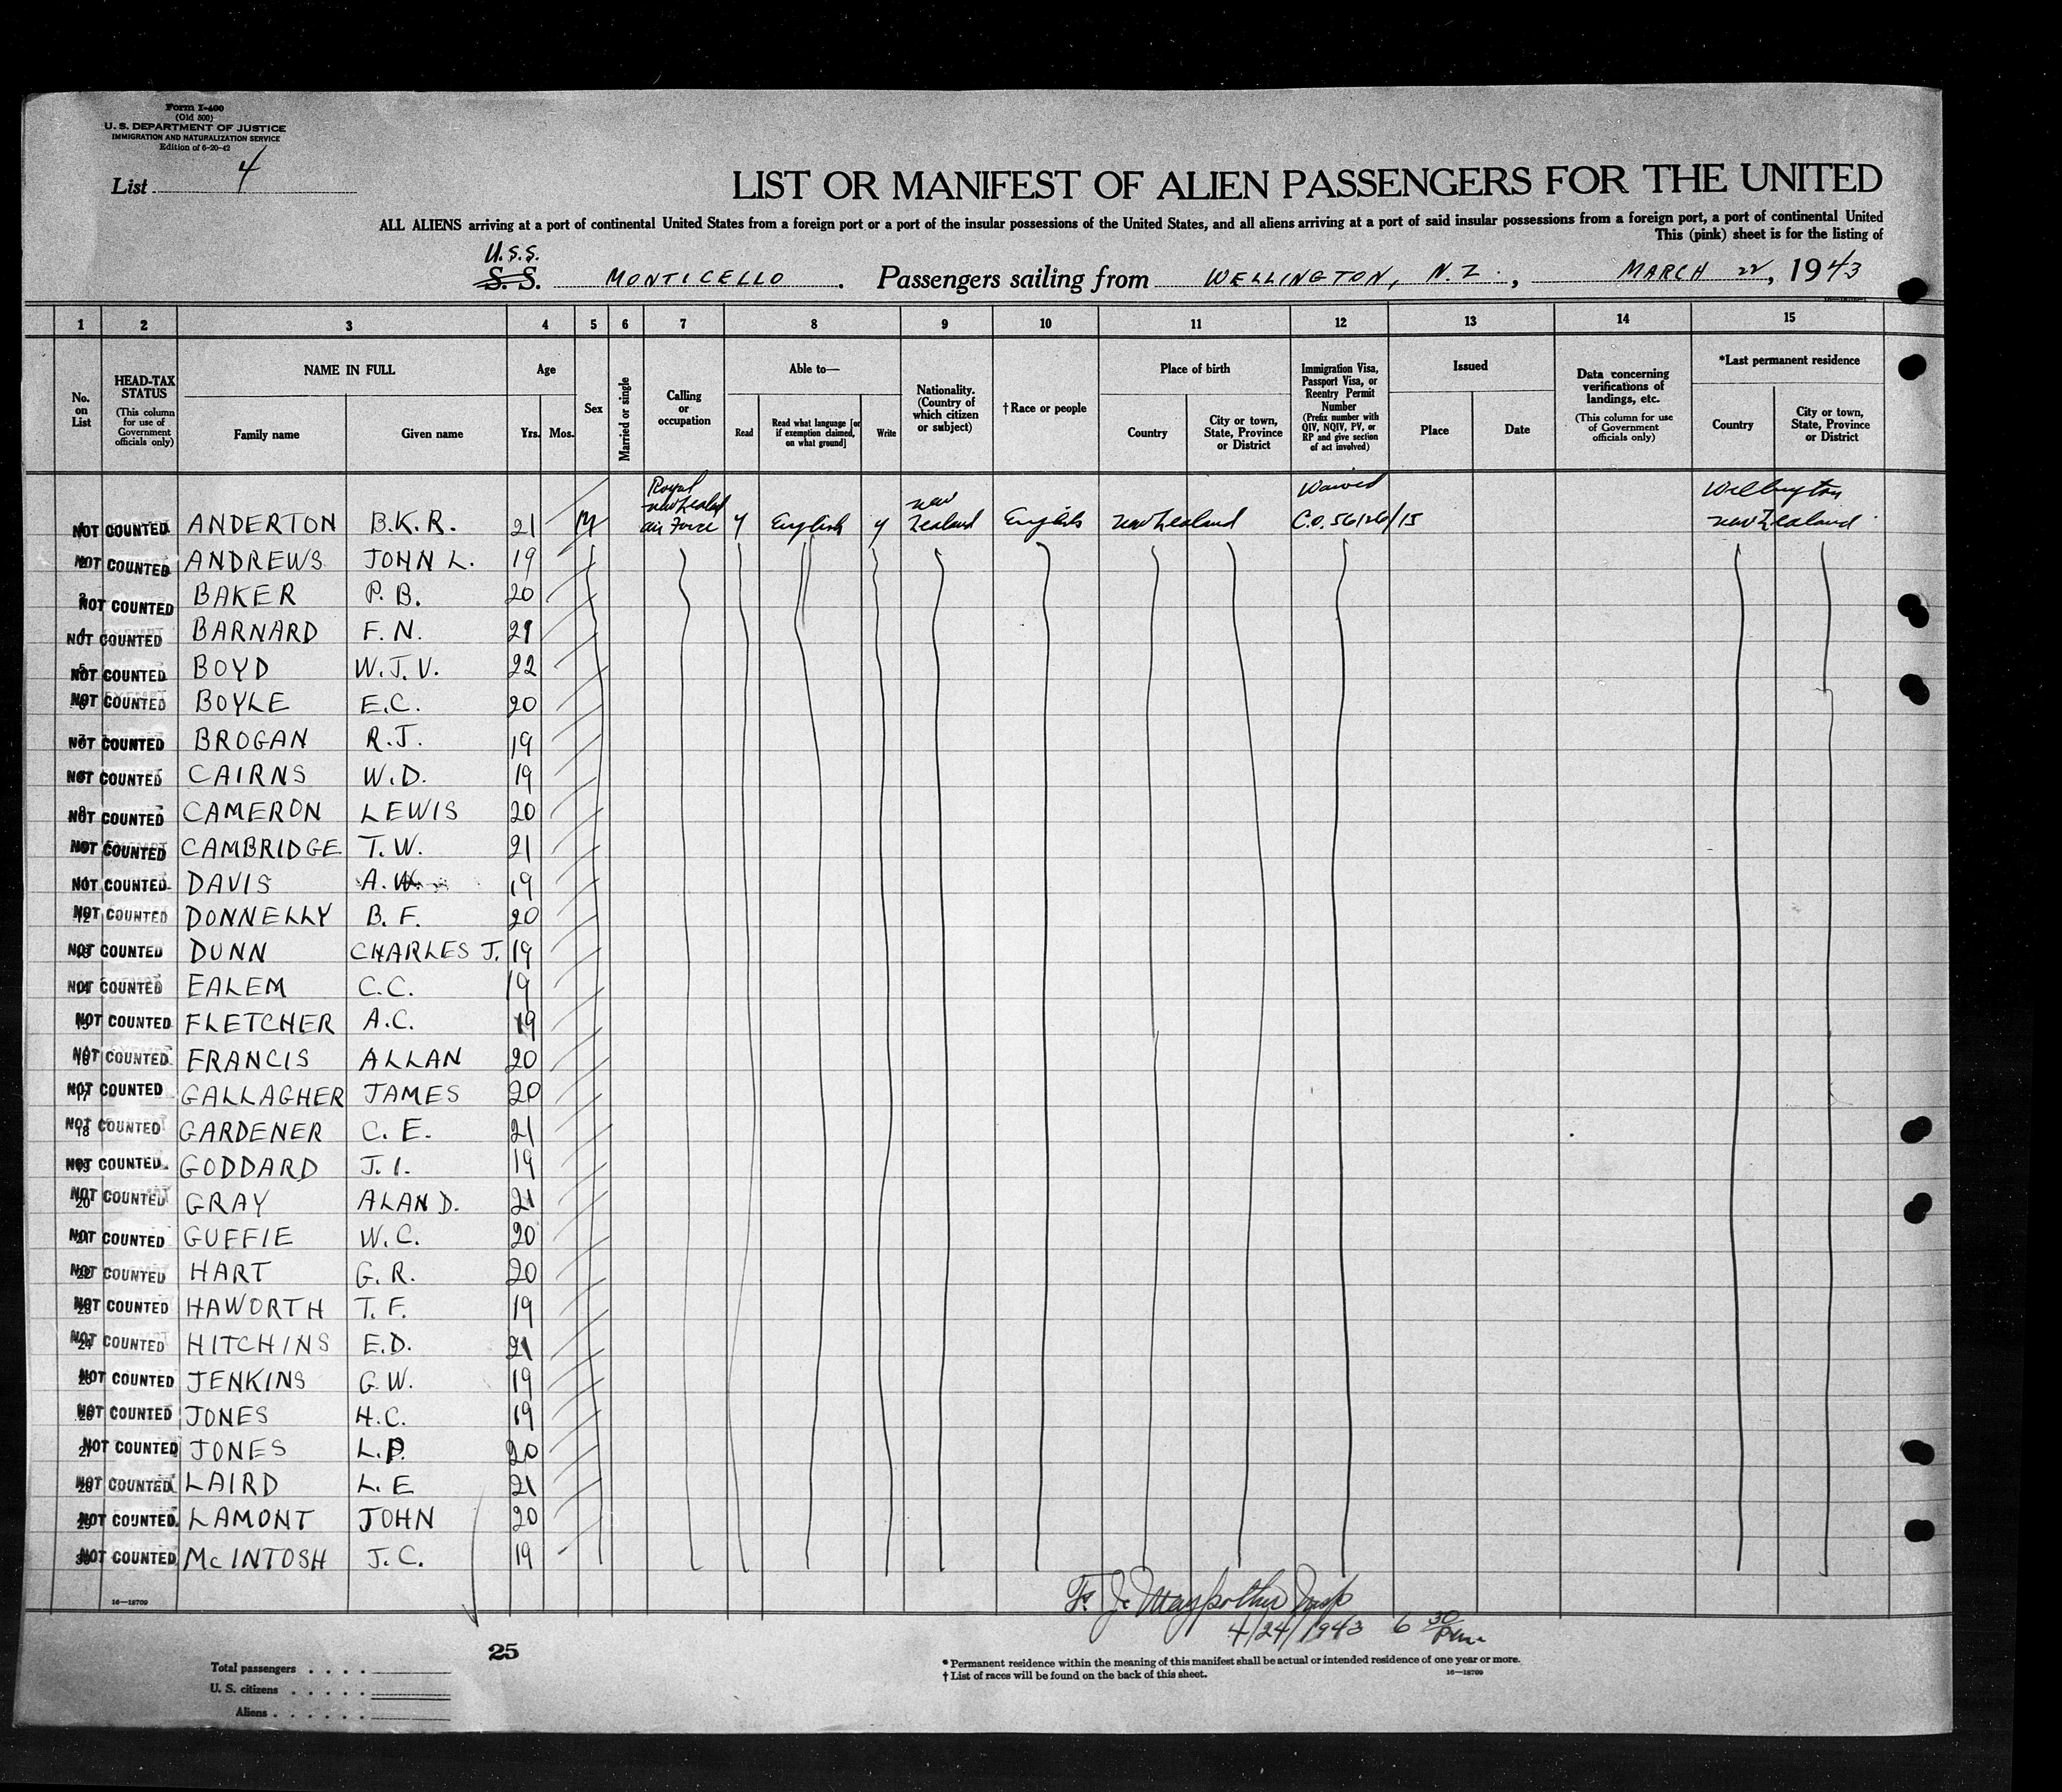 Form I-400
(Old 500)
U. S. DEPARTMENT OF JUSTICE
IMMIGRATION AND NATURALIZATION SERVICE
Edition of 6-20-42
List 4
LIST OR MANIFEST OF ALIEN PASSENGERS FOR THE UNITED
ALL ALIENS arriving at a port of continental United States from a foreign port or a port of the insular possessions of the United States, and all aliens arriving at a port of said insular possessions from a foreign port, a port of continental United
This (pink) sheet is for the listing of
U.S.S.
S. S. MONTICELLO. Passengers sailing from WELLINGTON, N.Z., MARCH 22, 1943
1 2 3 4 5 6 7 8 9 10 11 12 13 14 15
No. on List
HEAD-TAX STATUS
(This column for use of Government officials only)
NAME IN FULL
Family name
Given name
Age
Yrs. Mos.
Sex
Married or single
Calling or occupation
Able to—
Read
Read what language [or if exemption claimed, on what ground]
Write
Nationality. (Country of which citizen or subject)
†Race or people
Place of birth
Country
City or town, State, Province or District
Immigration Visa, Passport Visa, or Reentry Permit Number
(Prefix number with QIV, NQIV, PV, or RP and give section of act involved)
Issued
Place
Date
Data concerning verifications of landings, etc.
(This column for use of Government officials only)
*Last permanent residence
Country
City or town, State, Province or District
NOT COUNTED ANDERTON B.K.R. 21 M Royal New Zealand Air Force y English y New Zealand English New Zealand Waived C.O. 56126/15 Wellington New Zealand
NOT COUNTED ANDREWS JOHN L. 19
3 NOT COUNTED BAKER P. B. 20
4 NOT COUNTED BARNARD F. N. 21
5 NOT COUNTED BOYD W. J. V. 22
6 NOT COUNTED BOYLE E.C. 20
7 NOT COUNTED BROGAN R.J. 19
NOT COUNTED CAIRNS W.D. 19
NOT COUNTED CAMERON LEWIS 20
NOT COUNTED CAMBRIDGE T.W. 21
NOT COUNTED DAVIS A. W. 19
12 NOT COUNTED DONNELLY B. F. 20
NOT COUNTED DUNN CHARLES J. 19
14 NOT COUNTED EALEM C.C. 19
15 NOT COUNTED FLETCHER A.C. 19
16 NOT COUNTED FRANCIS ALLAN 20
17 NOT COUNTED GALLAGHER JAMES 20
18 NOT COUNTED GARDENER C. E. 21
19 NOT COUNTED GODDARD J. I. 19
20 NOT COUNTED GRAY ALAN D. 21
21 NOT COUNTED GUFFIE W.C. 20
22 NOT COUNTED HART G. R. 20
23 NOT COUNTED HAWORTH T. F. 19
24 NOT COUNTED HITCHINS E.D. 21
25 NOT COUNTED JENKINS G.W. 19
26 NOT COUNTED JONES H.C. 19
27 NOT COUNTED JONES L.P. 20
28 NOT COUNTED LAIRD L. E 21
29 NOT COUNTED LAMONT JOHN 20
30 NOT COUNTED McINTOSH J.C. 19
16—18709
F. J. Insp
4/24/1943 6 30 P.m.
25
Total passengers
U. S. citizens
Aliens
* Permanent residence within the meaning of this manifest shall be actual or intended residence of one year or more.
† List of races will be found on the back of this sheet.
16—18709